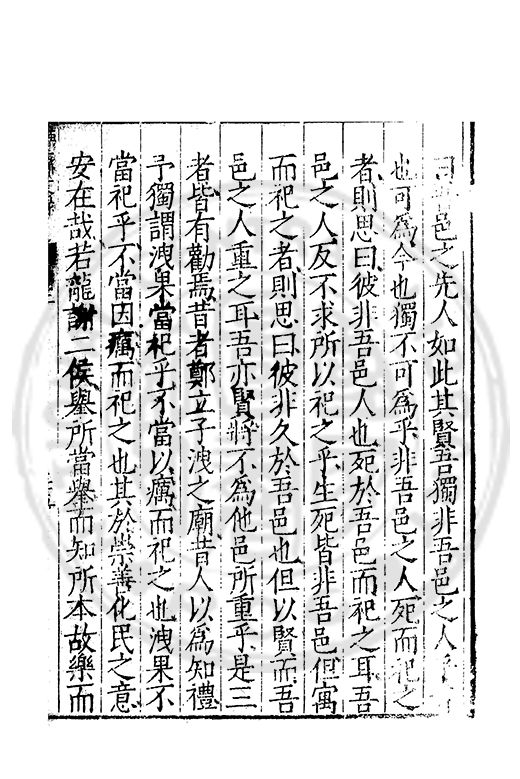 曰吾邑之先人如此其賢吾獨非吾邑之人乎
也可為今也獨不可為乎非吾邑之人死而祀之
者則思曰彼非吾邑人也死於吾邑而祀之耳吾
邑之人反不求所以祀之乎生死皆非吾邑但寓
而祀之者則思曰彼非久於吾邑也但以賢而吾
邑之人重之耳吾亦賢將不為他邑所重乎是三
者皆有勸焉昔者鄭立子洩之廟昔人以為知禮
予獨謂洩果當祀乎不當以癘而祀之也洩果不
當祀乎不當因癘而祀之也其於崇善化民之意
安在哉若龍謝二侯舉所當舉而知所本故樂而